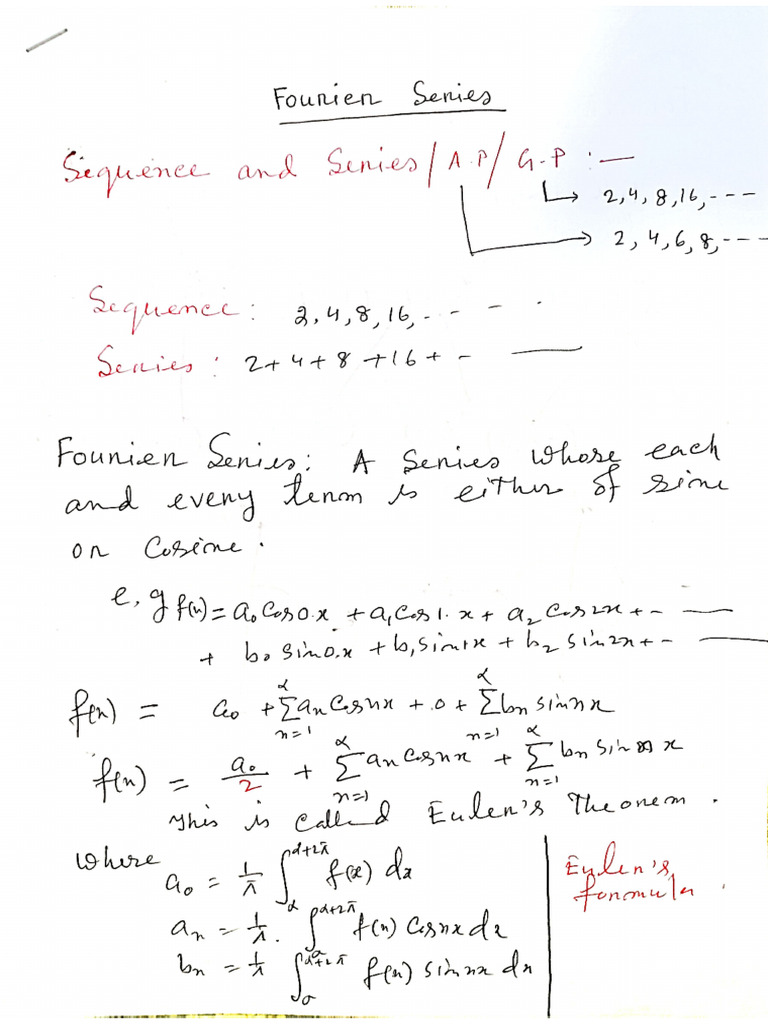 Fourier Series
Sequence and Series/A.P/G.P :—
2,4,8,16,---
2,4,6,8,---
Sequence: 2,4,8,16,- - - .
Series: 2+4+8+16+ - —
Fourier Series: A series whose each
and every term is either of sine
or Cosine.
e,g f(x) = a₀ Cos0.x + a₁ Cos1.x + a₂ Cos2x + - —
+ b₀ sin0.x + b₁ sin1x + b₂ sin2x + - —
f(x) = a₀ + ∑_{n=1}^{α} aₙ Cosnx + 0 + ∑_{n=1}^{α} bₙ sinnx
f(x) = a₀/2 + ∑_{n=1}^{α} aₙ Cosnx + ∑_{n=1}^{α} bₙ sin x
This is called Euler's Theorem.
where
a₀ = 1/π ∫_{α}^{α+2π} f(x) dx
Euler's
formula
aₙ = 1/π . ∫_{α}^{α+2π} f(x) Cosnx dx
bₙ = 1/π ∫^{α+2π} f(x) sin nx dx